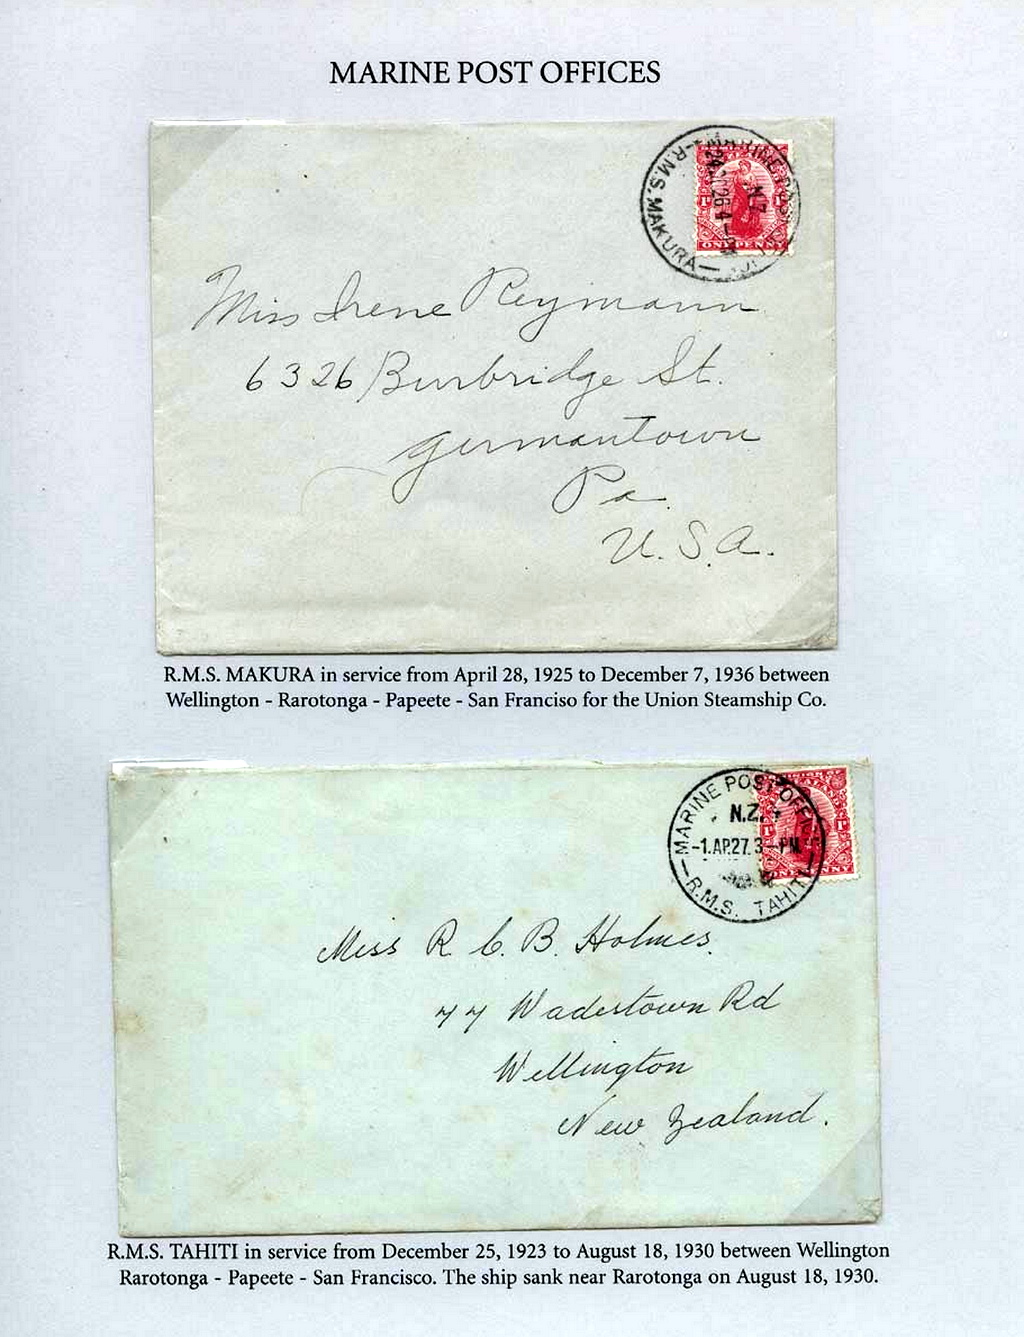 MARINE POST OFFICES
MARINE POST
N.Z.
24 26 4-PM
-R.M.S. MAKURA-
ONE PENNY
Miss Irene Reymann
6326 Burbridge St.
Germantown
Pa.
U.S.A.
R.M.S. MAKURA in service from April 28, 1925 to December 7, 1936 between
Wellington - Rarotonga - Papeete - San Franciso for the Union Steamship Co.
MARINE POST OFFICE
N.Z.
-1.AP.27.3-PM.
R.M.S. TAHITI
ONE PENNY
Miss R. C. B. Holmes.
77 Wadestown Rd
Wellington
New Zealand.
R.M.S. TAHITI in service from December 25, 1923 to August 18, 1930 between Wellington
Rarotonga - Papeete - San Francisco. The ship sank near Rarotonga on August 18, 1930.